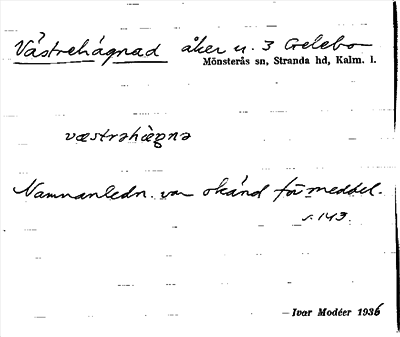 Västrehägnad åker u. 3 Gelebo
Mönsterås sn, Stranda hd, Kalm. l.
væstrəhæ̀gnə
Namnanledn. var okänd för meddel.
s. 143.
— Ivar Modéer 1936